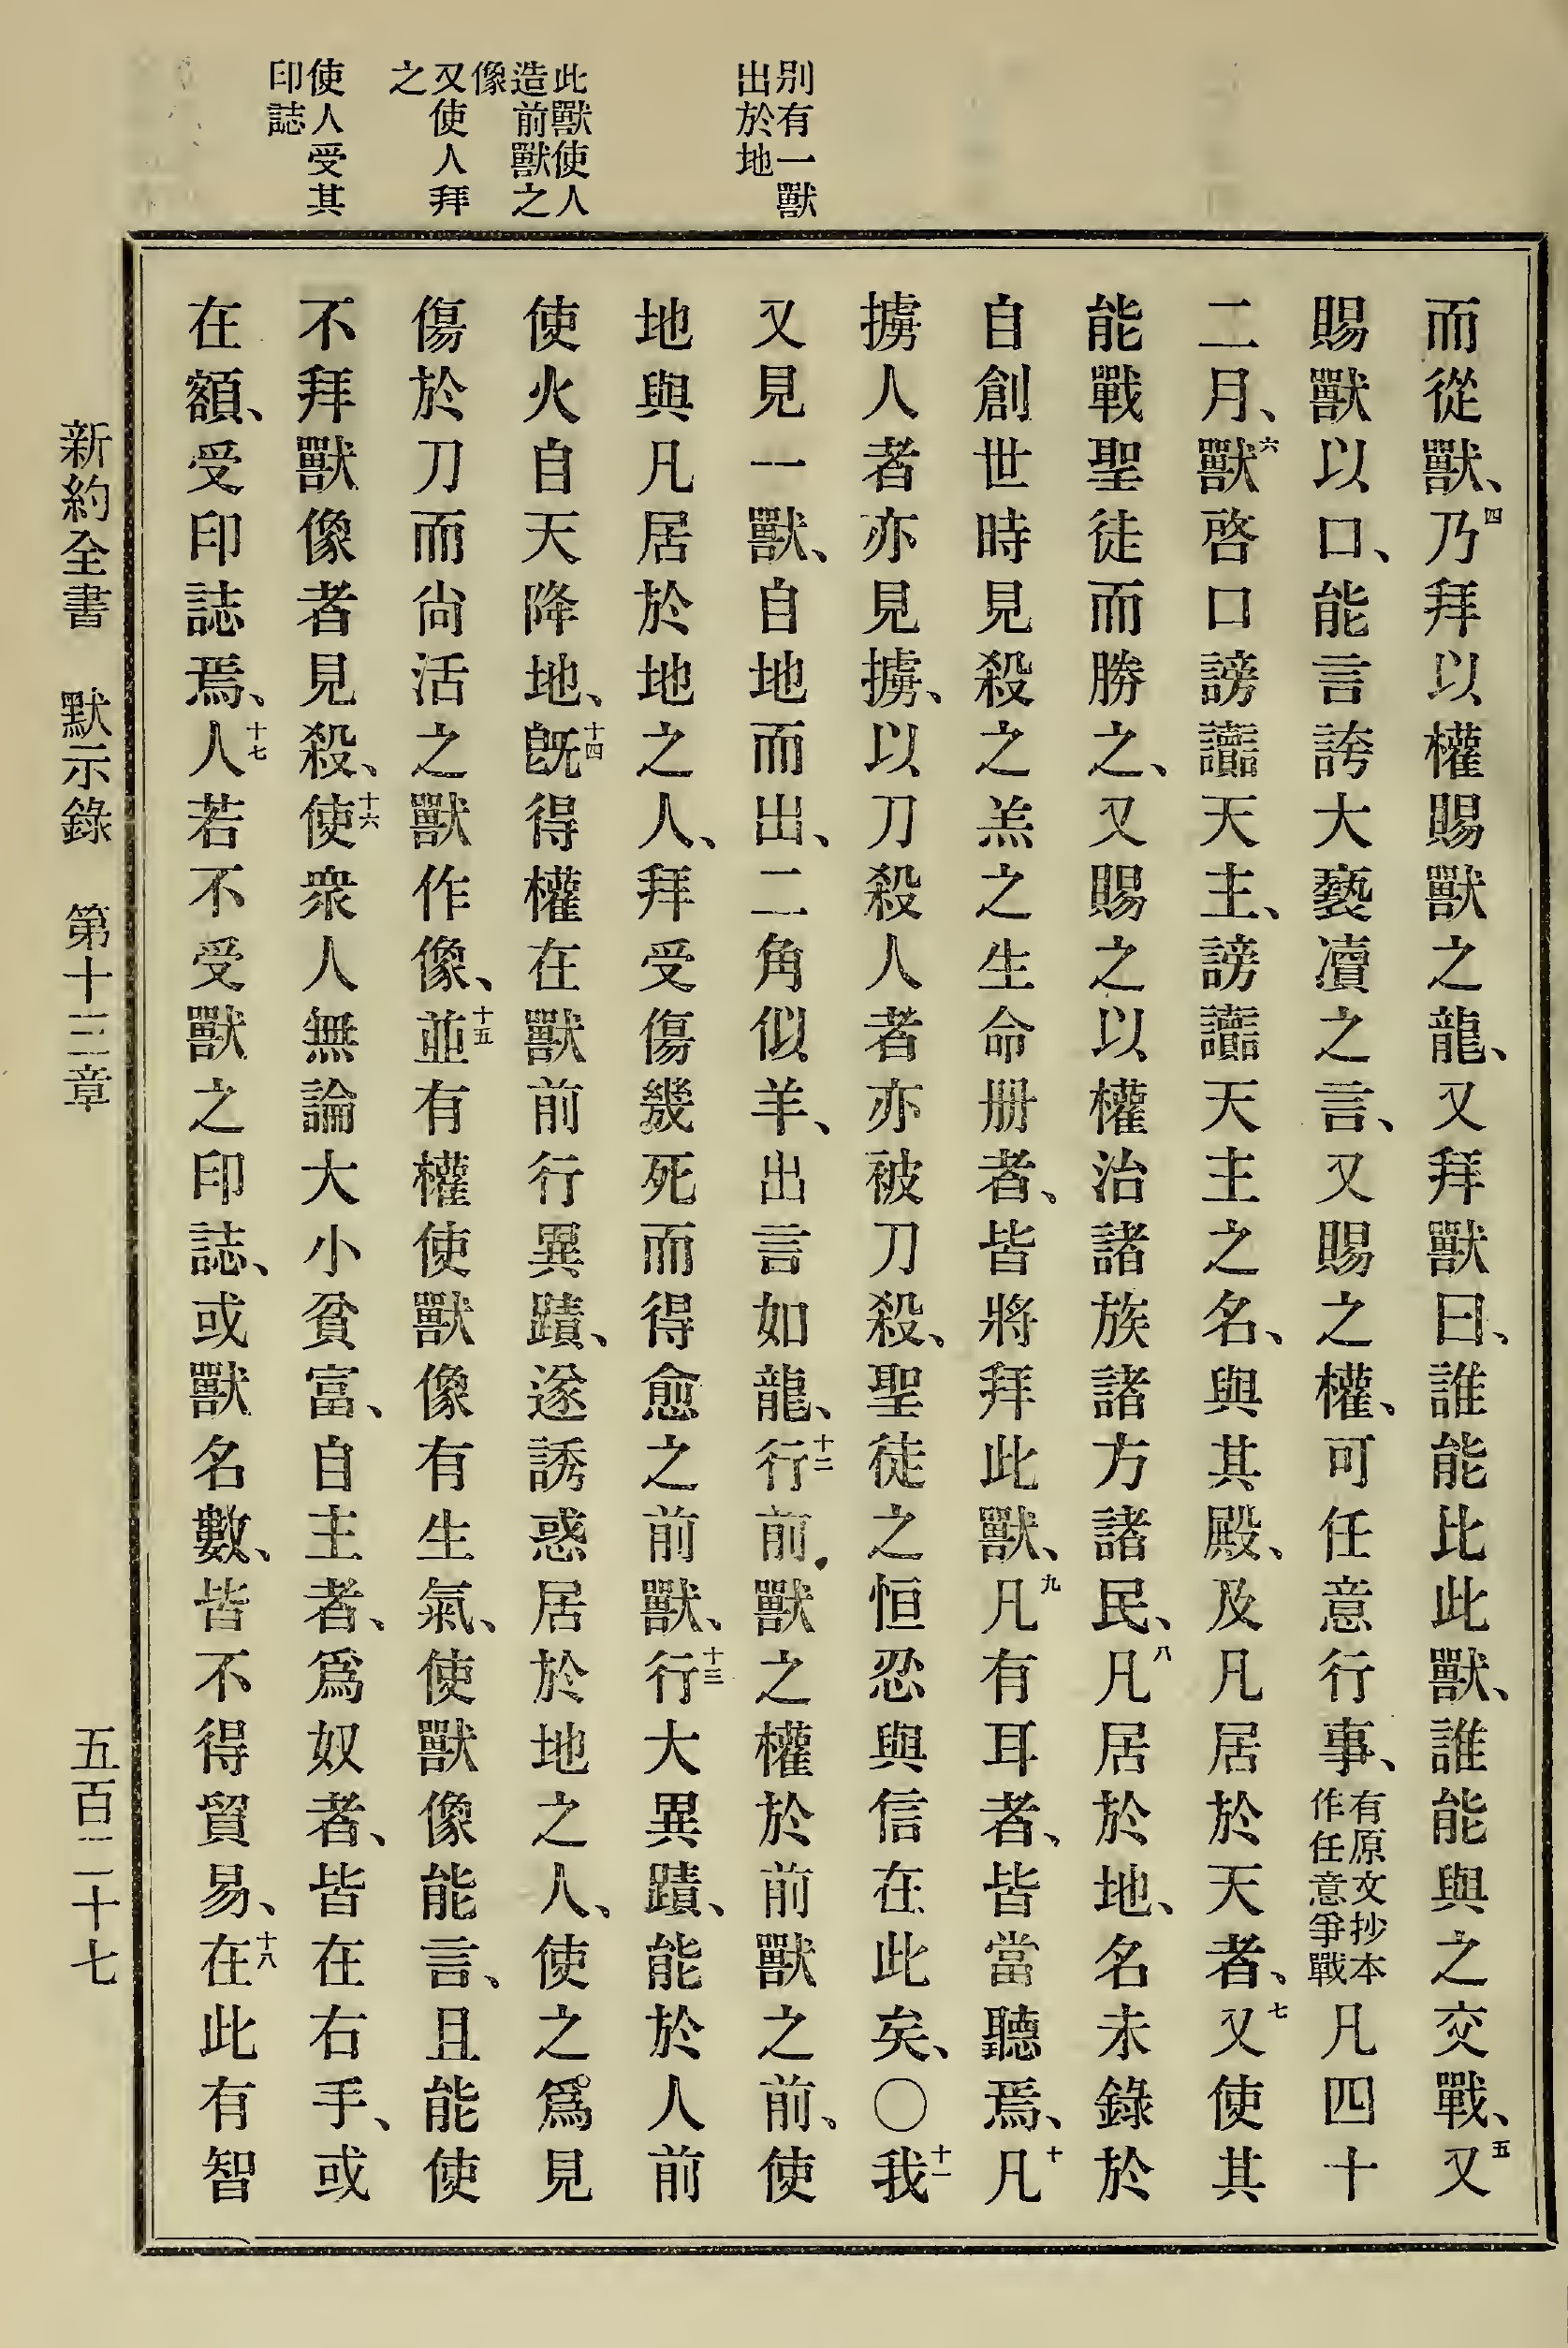 別有一獸
出於地
此獸使人
造前獸之
像
又使人拜
之
使人受其
印誌
而從獸、四乃拜以權賜獸之龍、又拜獸曰、誰能比此獸、誰能與之交戰、五又
賜獸以口、能言誇大褻凟之言、又賜之權、可任意行事、有原文抄本作任意爭戰凡四十
二月、六獸啓口謗讟天主、謗讟天主之名、與其殿、及凡居於天者、七又使其
能戰聖徒而勝之、又賜之以權治諸族諸方諸民、八凡居於地、名未錄於
自創世時見殺之羔之生命册者、皆將拜此獸、九凡有耳者、皆當聽焉、十凡
擄人者亦見擄、以刀殺人者亦被刀殺、聖徒之恒忍與信在此矣、〇十一我
又見一獸、自地而出、二角似羊、出言如龍、十二行前獸之權於前獸之前、使
地與凡居於地之人、拜受傷幾死而得愈之前獸、十三行大異蹟、能於人前
使火自天降地、十四旣得權在獸前行異蹟、遂誘惑居於地之人、使之爲見
傷於刀而尙活之獸作像、十五並有權使獸像有生氣、使獸像能言、且能使
不拜獸像者見殺、十六使衆人無論大小貧富、自主者、爲奴者、皆在右手、或
在額、受印誌焉、十七人若不受獸之印誌、或獸名數、皆不得貿易、十八在此有智
新約全書 默示錄 第十三章 五百二十七